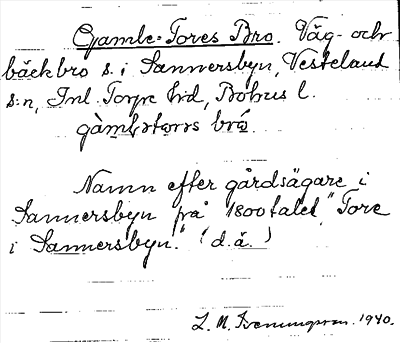 Gamle-Tores Bro. Väg- och
bäckbro s. i Sannersbyn, Vesteland
s:n, Inl. Torpe hrd, Bohus l.
gàmḷetorrs brọ́.
Namn efter gårdsägare i
Sannersbyn på 1800talet, "Tore
i Sannersbyn." (d.ä.)
L. M. 1940.